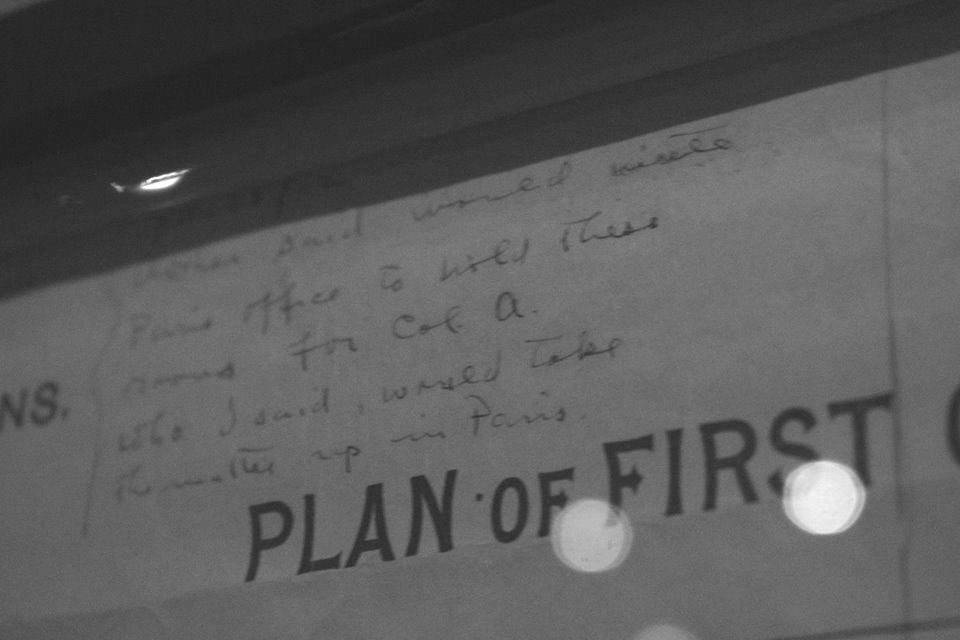 said would
Paris office to hold these
rooms for Col. A.
who I said, would take
the matter up in Paris.
NS.
PLAN · OF FIRST